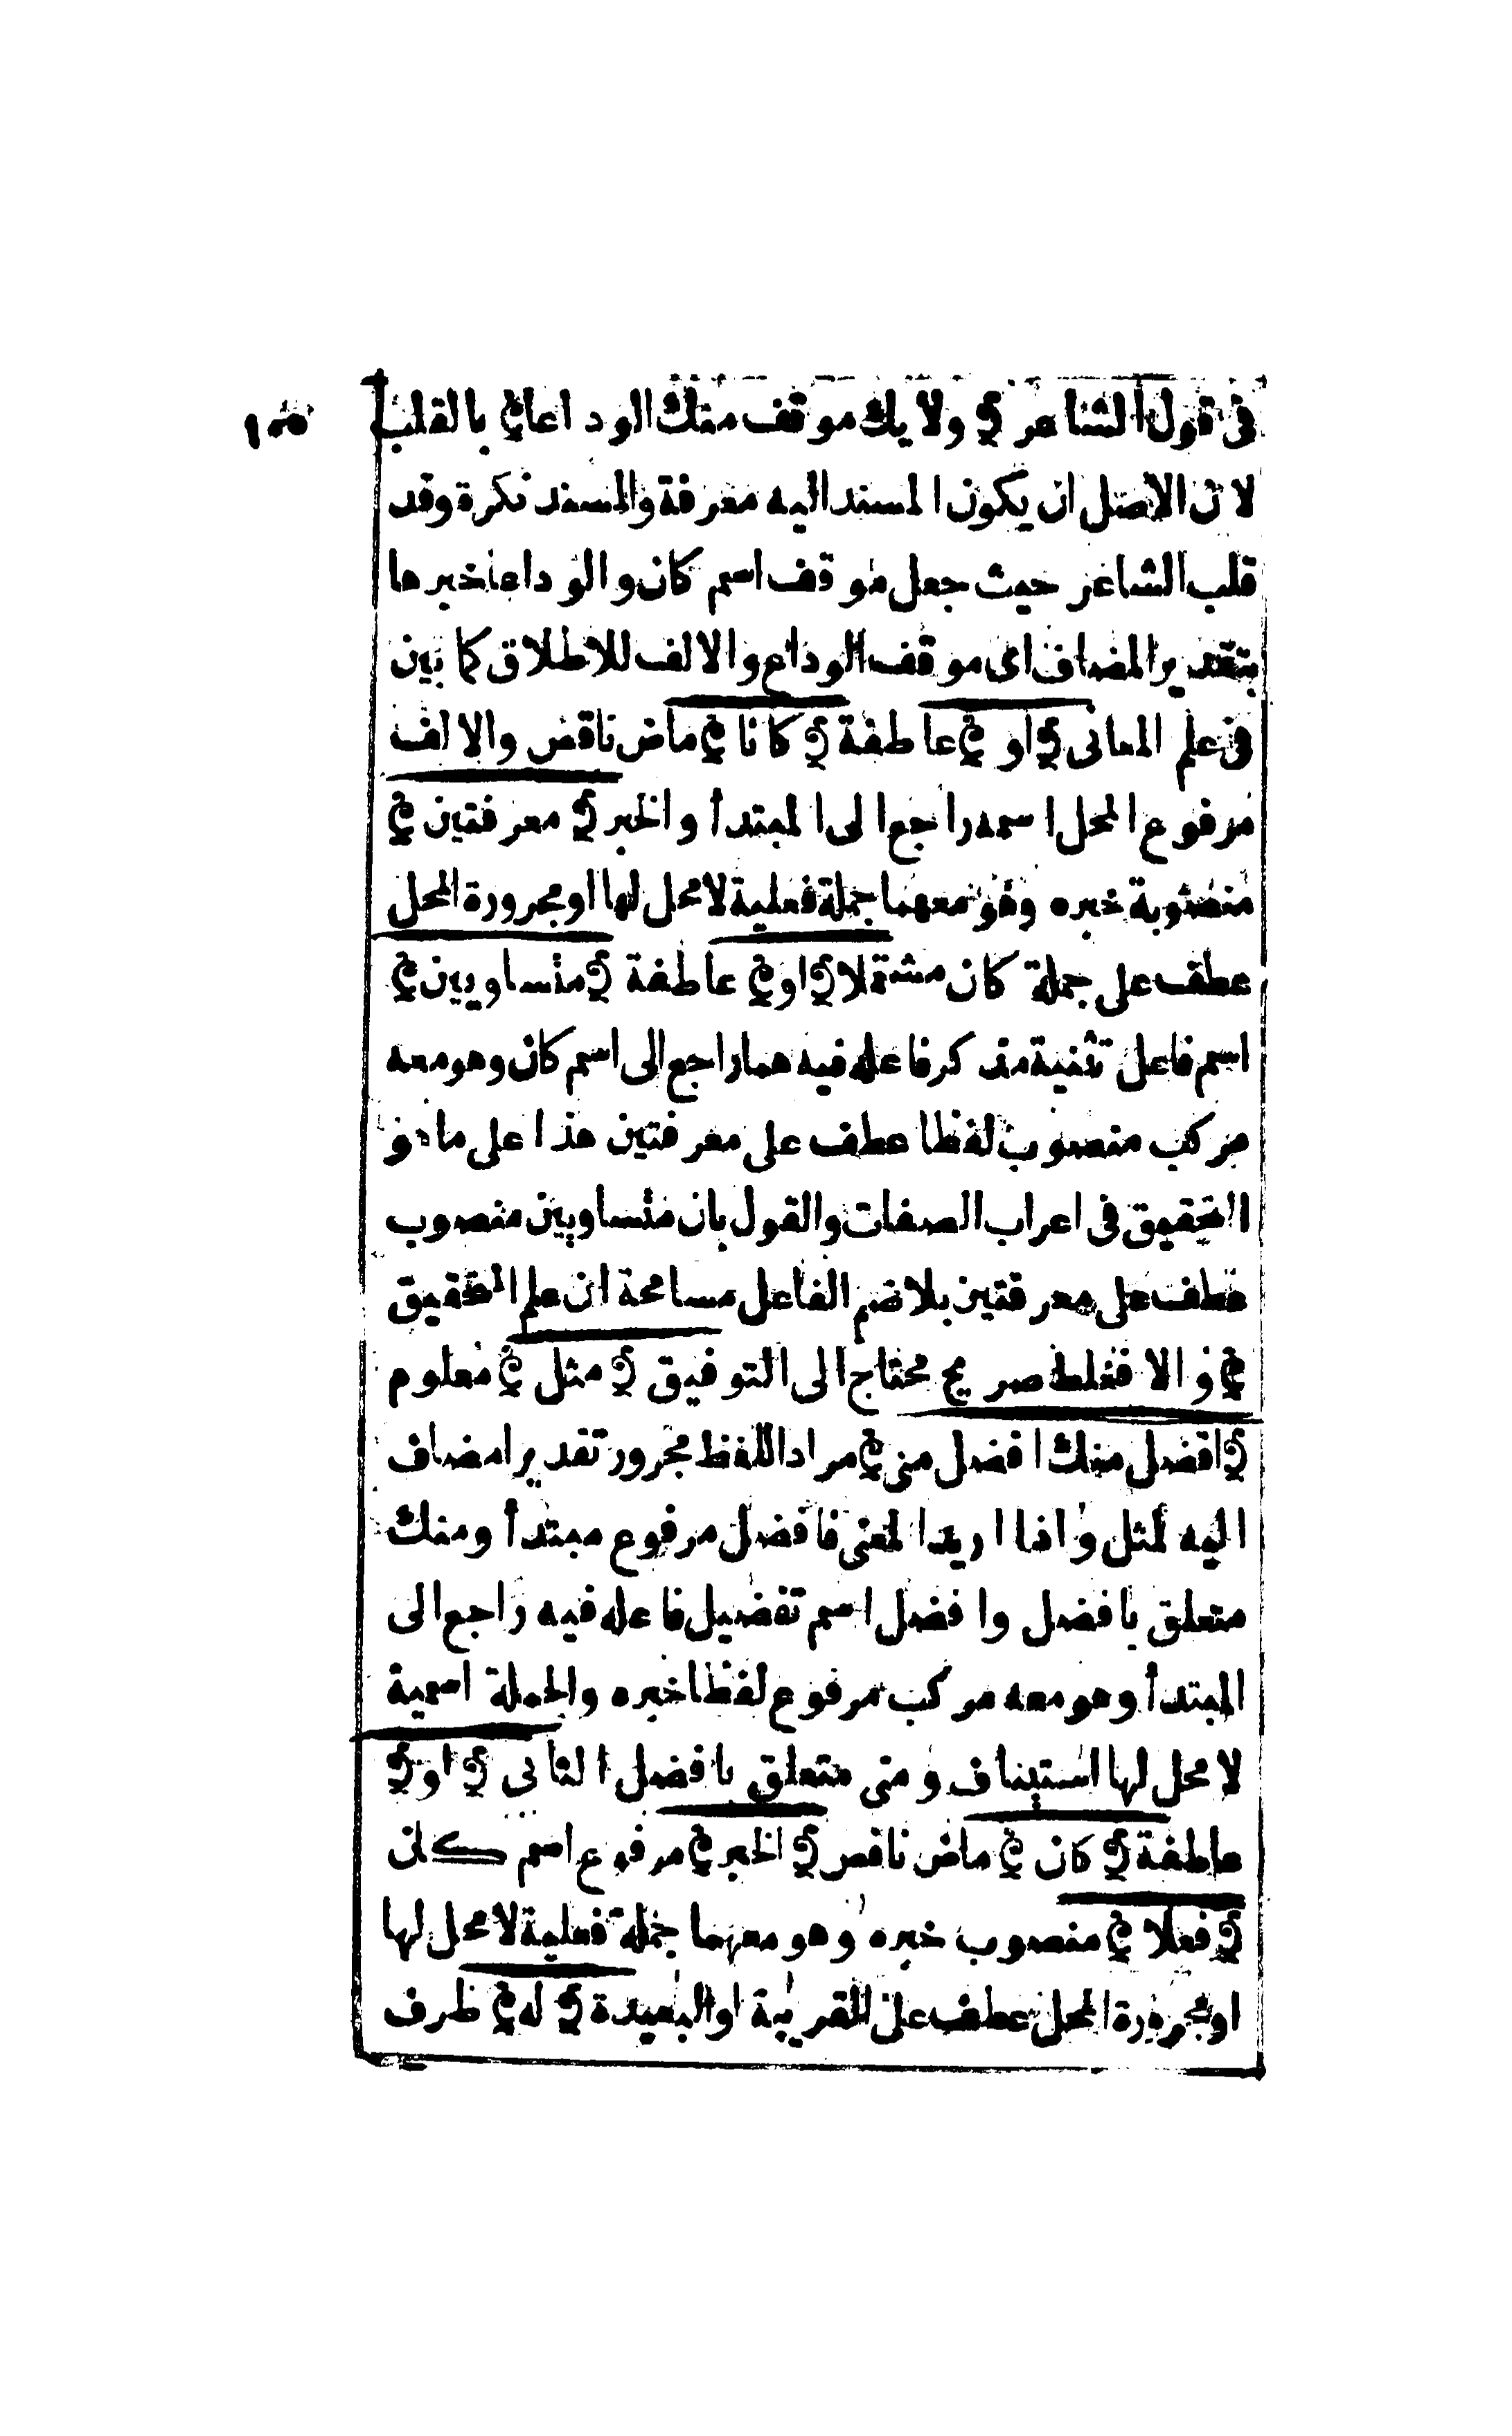 فى قول الشاعر ﴿ ولا يك موقف منك الوداعا ﴾ بالقلب
لان الاصل ان يكون المسند اليه معرفة والمسند نكرة وقد
قلب الشاعر حيث جعل موقف اسم كان والوداعا خبرها
بتقدير المضاف اى موقف الوداع والالف للاطلاق كما بين
فى علم المعانى ﴿ او ﴾ عاطفة ﴿ كانا ﴾ ماض ناقص والالف
مرفوع المحل اسمه راجع الى المبتدأ والخبر ﴿ معرفتين ﴾
منصوبة خبره وهو معهما جملة فعلية لا محل لها او مجرورة المحل
عطف على جملة كان مشتملا ﴿ او ﴾ عاطفة ﴿ متساويين ﴾
اسم فاعل تثنية مذكر فاعله فيه هما راجع الى اسم كان وهو معه
مركب منصوب لفظا عطف على معرفتين هذا على ما هو
التحقيق فى اعراب الصفات والقول بان متساويين منصوب
عطف على معرفتين بلا ضم الفاعل مسامحة ان علم التحقيق
والا فغلط صريح محتاج الى التوفيق ﴿ مثل ﴾ معلوم
﴿ افضل منك افضل منى ﴾ مراد اللفظ مجرور تقديرا مضاف
اليه لمثل واذا اريد المعنى فافضل مرفوع مبتدأ ومنك
متعلق بافضل وافضل اسم تفضيل فاعله فيه راجع الى
المبتدأ وهو معه مركب مرفوع لفظا خبره والجملة اسمية
لا محل لها استيناف ومنى متعلق بافضل الثانى ﴿ او ﴾
عاطفة ﴿ كان ﴾ ماض ناقص ﴿ الخبر ﴾ مرفوع اسم كان
﴿ فعلا ﴾ منصوب خبره وهو معهما جملة فعلية لا محل لها
او مجرورة المحل عطف على القريبة او البعيدة ﴿ له ﴾ ظرف